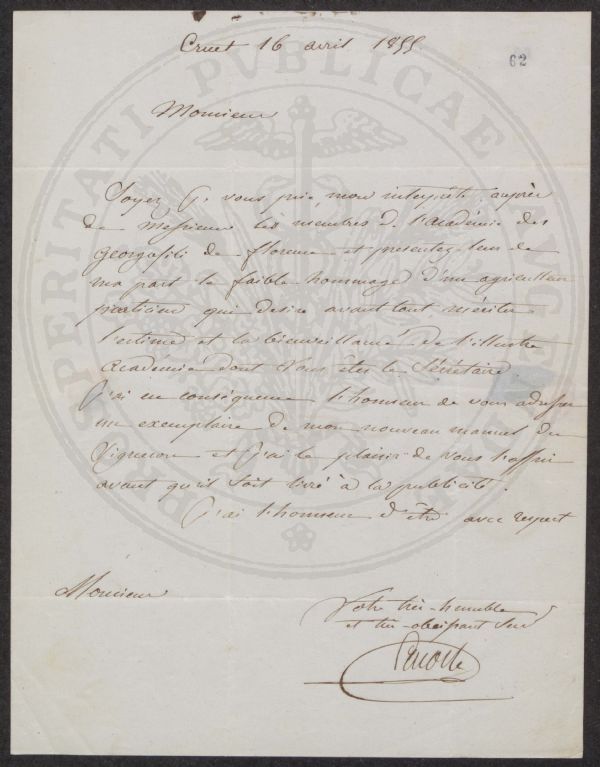 Cruet 16 avril 1855.
62
Monsieur
Soyez je vous prie mon interprète auprès
de Messieurs les membres de l'académie des
georgofili de florence et presentez leur de
ma part le faible hommage d'un agriculteur
praticien qui desire avant tout mériter
l'estime et la bienveillance de l'illustre
académie dont vous êtes le Sécrétaire.
J'ai en conséquence l'honneur de vous adresser
un exemplaire de mon nouveau manuel du
Vigneron et j'ai le plaisir de vous l'offrir
avant qu'il soit livré à la publicité.
J'ai l'honneur d'être avec respect
Monsieur
Votre très-humble
et très-obeissant Serv
PROSPERITATI PUBLICAE AUGENDAE